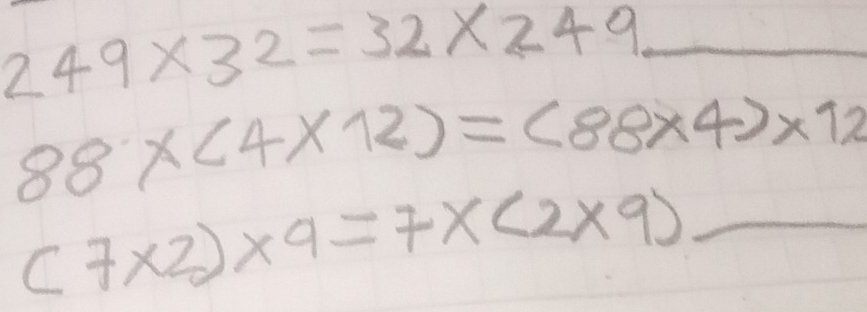 249×32=32×249______
88×(4×12)=(88×4)×12
(7×2)×9=7×(2×9)______